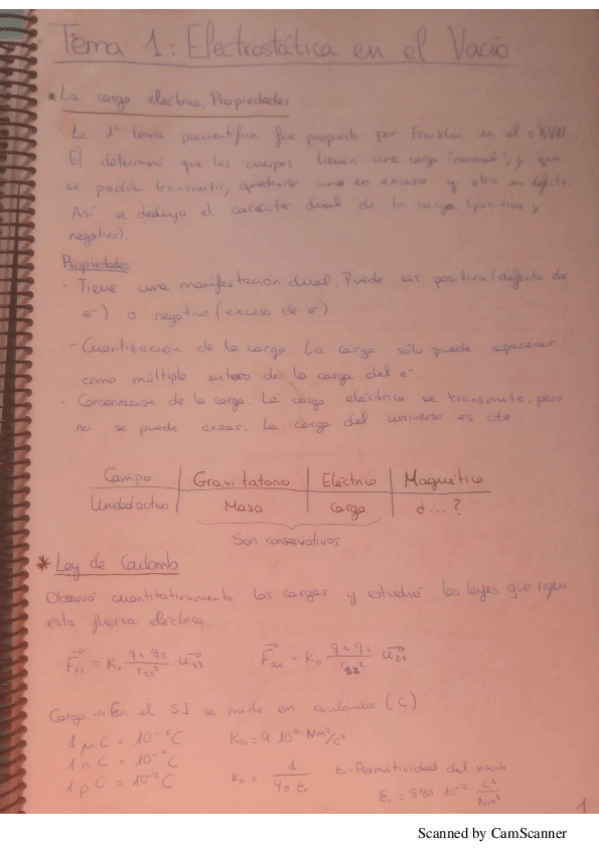 Tema 1: Electrostática en el Vacío
* La carga eléctrica. Propiedades
La 1ª teoría precientífica fue propuesta por Franklin en el s XVIII
El determinó que los cuerpos tienen una carga "normal", y que
se podía transmitir, quedando uno en exceso y otro en defecto.
Así se dedujo el carácter dual de la carga (positiva y
negativa).
Propiedades
- Tiene una manifestación dual. Puede ser positiva (defecto de
e⁻) o negativa (exceso de e⁻)
- Cuantización de la carga. La carga sólo puede aparecer
como múltiplo entero de la carga del e⁻.
- Conservación de la carga. La carga eléctrica se transmite, pero
no se puede crear. La carga del universo es cte.
Campo | Gravitatorio | Eléctrico | Magnético
Unidad activa | Masa | Carga | ¿...?
Son conservativos
* Ley de Coulomb
Observó cuantitativamente las cargas y estudió las leyes que rigen
esta fuerza eléctrica.
F₁₂ = K₀ q₁ q₂ / r₁₂² u₁₂ F₂₁ = K₀ q₁ q₂ / r₁₂² u₂₁
Carga → En el SI se mide en coulombs (C)
1 μC = 10⁻⁶C K₀ = 9 10⁹ Nm²/C²
1 nC = 10⁻⁹C
K₀ = 1 / 4π ε₀ ε₀ = Permitividad del vacío
1 pC =
ε₀ = 10⁻¹² C² / Nm²
1
Scanned by CamScanner